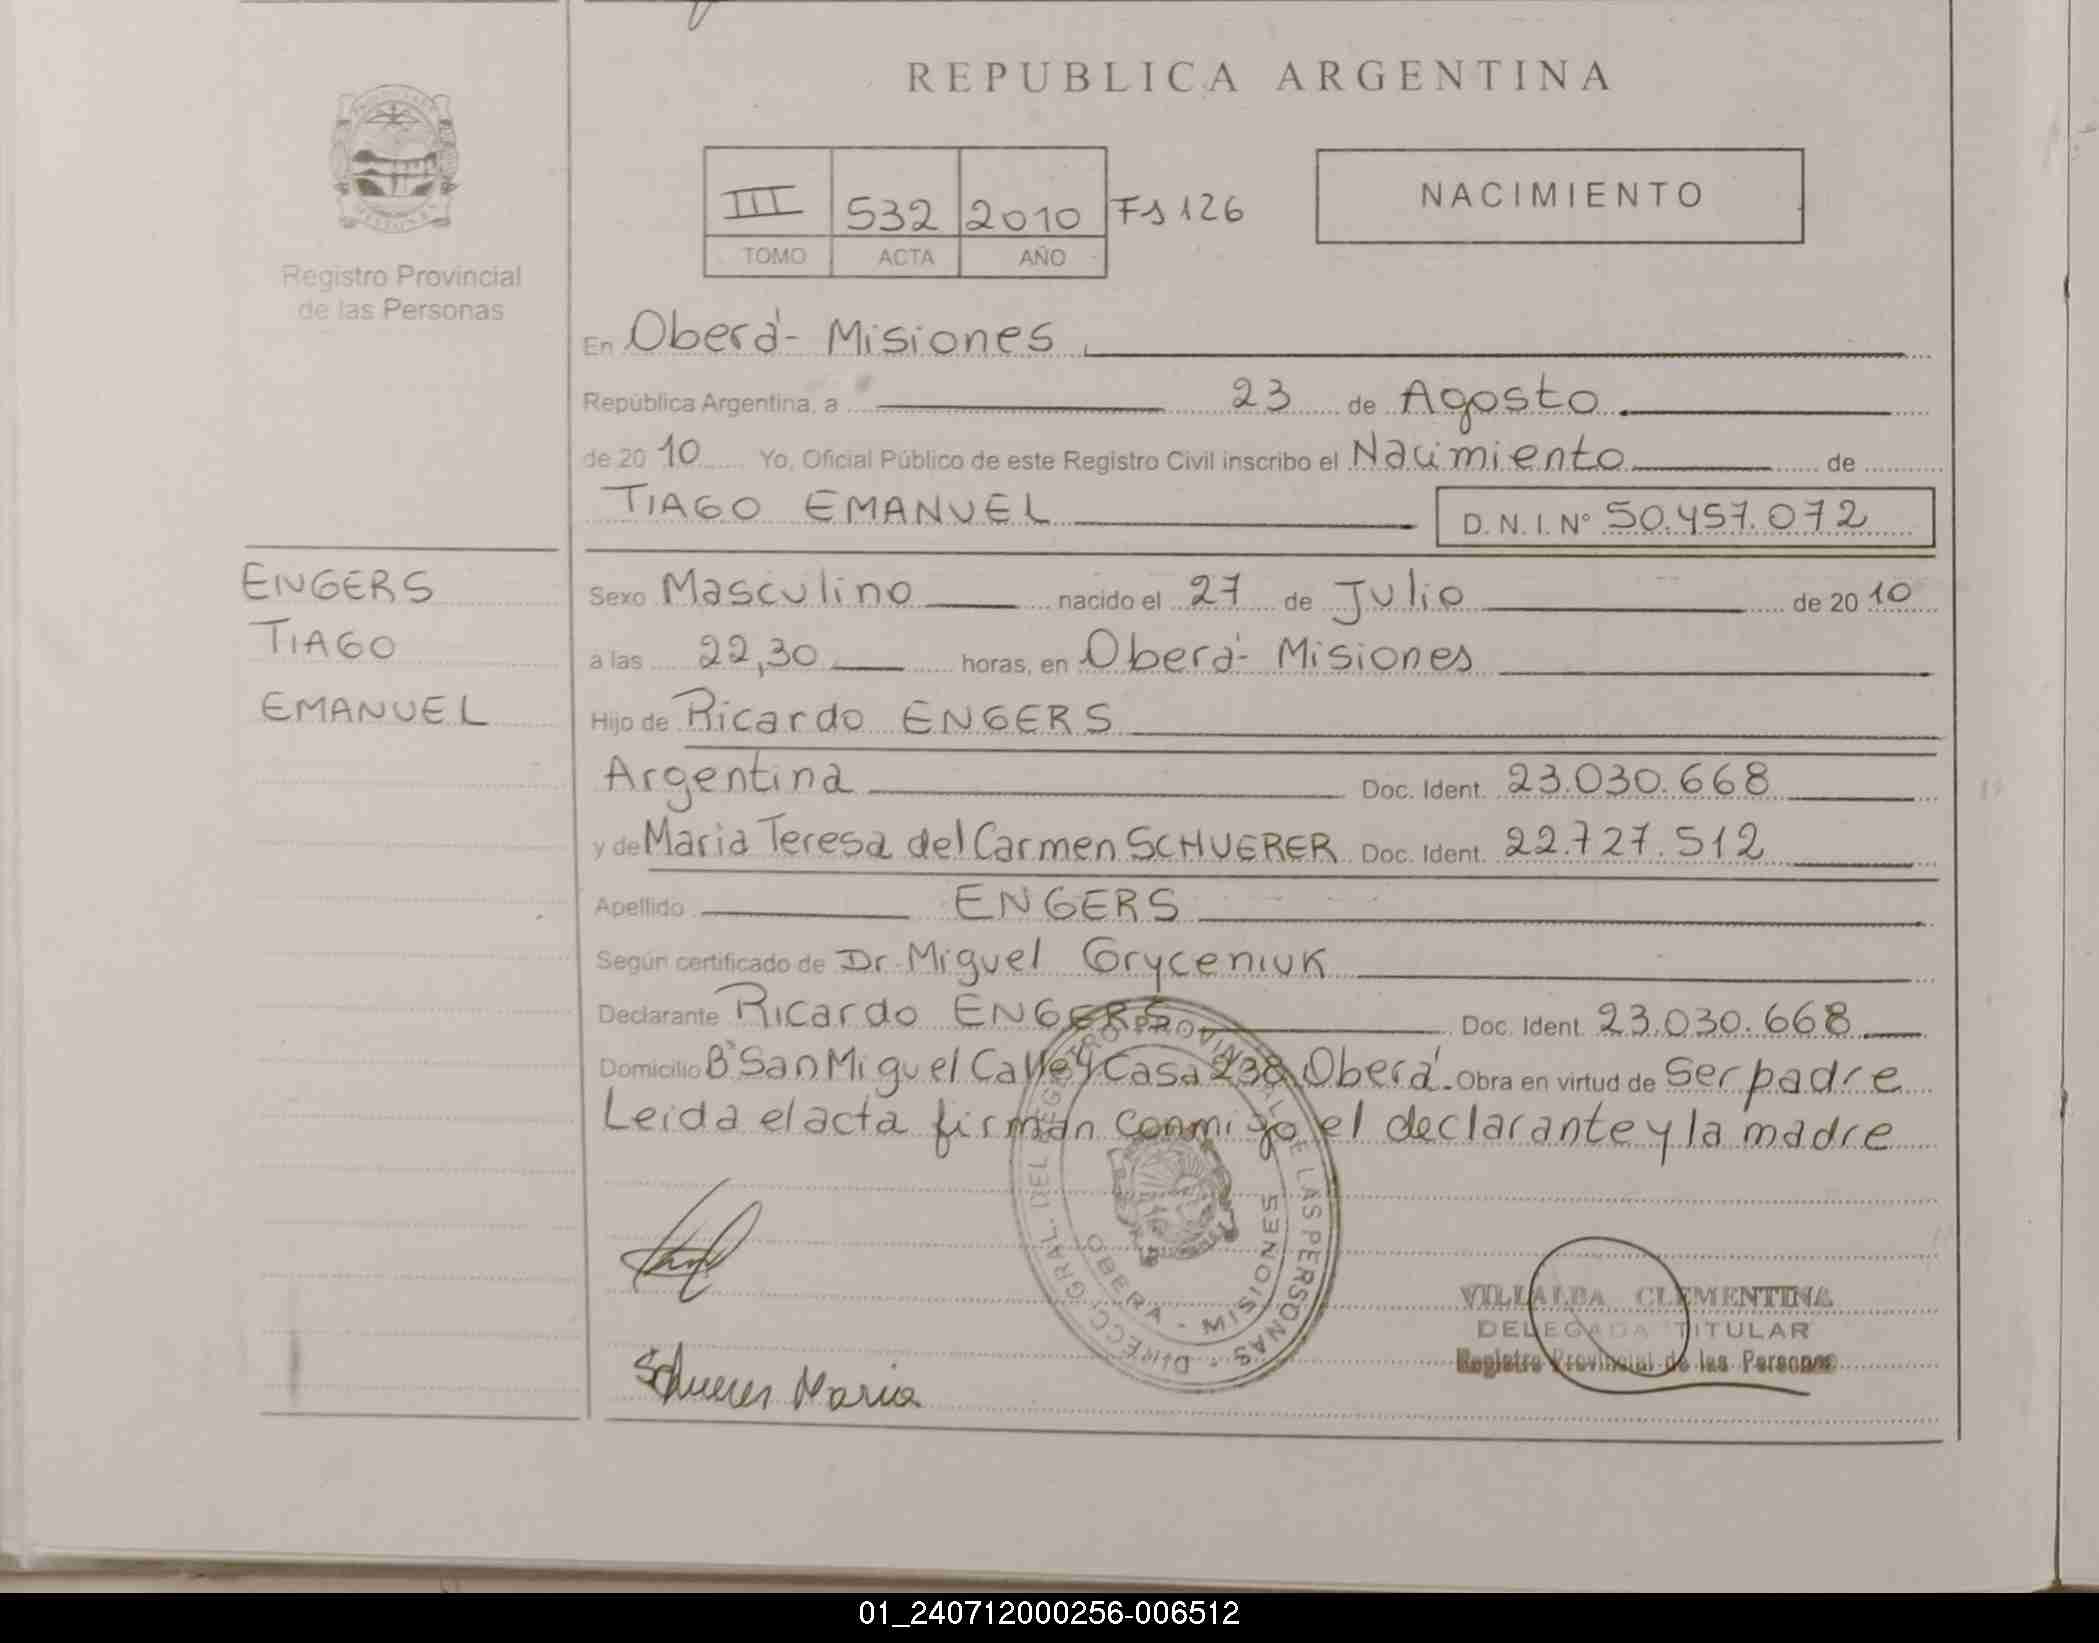 REPUBLICA ARGENTINA
III 532 2010 Fs 126
TOMO ACTA AÑO
NACIMIENTO
Registro Provincial
de las Personas
En Oberá - Misiones
República Argentina, a 23 de Agosto
de 2010 Yo, Oficial Público de este Registro Civil inscribo el Nacimiento de
TIAGO EMANUEL D.N.I. Nº 50.457.072
ENGERS
TIAGO
EMANUEL
Sexo Masculino nacido el 27 de Julio de 2010
a las 22,30 horas, en Oberá - Misiones
Hijo de Ricardo ENGERS
Argentina Doc. Ident. 23.030.668
y de Maria Teresa del Carmen SCHUERER Doc. Ident. 22.727.512
Apellido ENGERS
Según certificado de Dr. Miguel Gryceniuk
Declarante Ricardo ENGERS Doc. Ident. 23.030.668
Domicilio Bº San Miguel Calle 4 Casa 238 Oberá. Obra en virtud de ser padre
Leida el acta firman conmigo el declarante y la madre
DIRECC. GRAL. DEL REGISTRO PROVINCIAL DE LAS PERSONAS
OBERA - MISIONES
VILLALBA CLEMENTINA
DELEGADA TITULAR
Registro Provincial de las Personas
Schuerer Maria
01_240712000256-006512